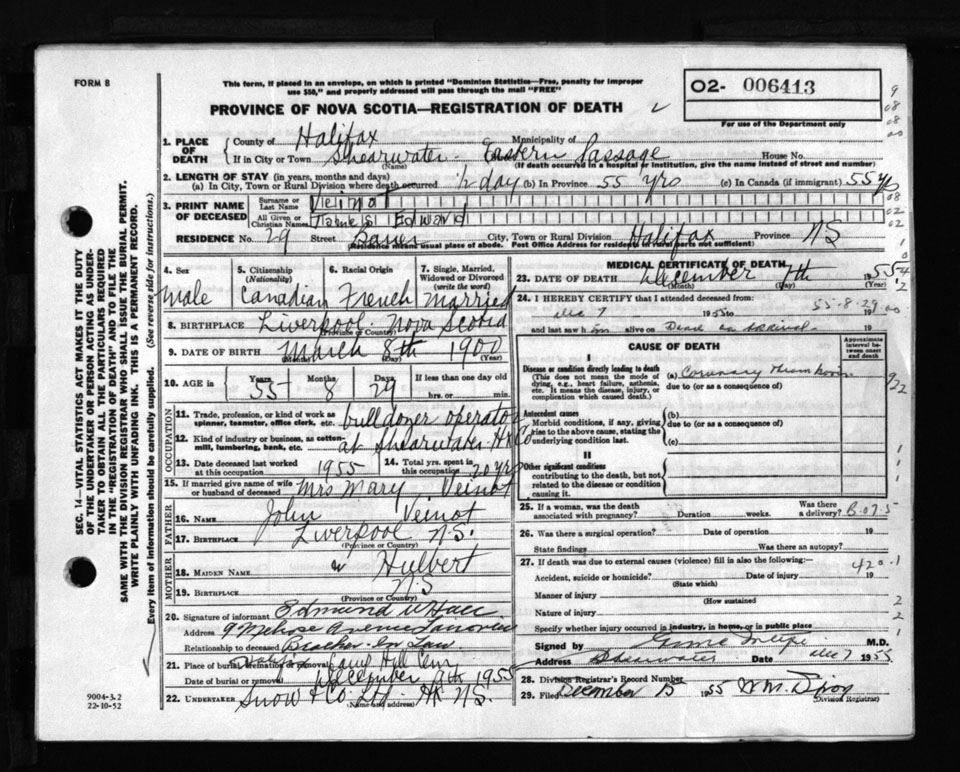 FORM 8
This form, if placed in an envelope, on which is printed "Dominion Statistics—Free, penalty for improper
use $50," and properly addressed will pass through the mail "FREE"
O2- 006413
For use of the Department only
PROVINCE OF NOVA SCOTIA—REGISTRATION OF DEATH
1. PLACE OF DEATH
County of Halifax Municipality of
If in City or Town Shearwater - Eastern Passage House No.
(Name) (If death occurred in a hospital or institution, give the name instead of street and number)
2. LENGTH OF STAY (in years, months and days)
(a) In City, Town or Rural Division where death occurred ½ day (b) In Province 55 yrs (c) In Canada (if immigrant) 55 yrs
3. PRINT NAME OF DECEASED
Surname or Last Name Veinot
All Given or Christian Names James Edward
RESIDENCE No. 29 Street City, Town or Rural Division Halifax Province NS
(Residence means usual place of abode. Post Office Address for residents in rural parts not sufficient)
4. Sex Male
5. Citizenship (Nationality) Canadian
6. Racial Origin French
7. Single, Married, Widowed or Divorced (write the word) Married
8. BIRTHPLACE Liverpool Nova Scotia
(Province or Country)
9. DATE OF BIRTH March 8th 1900
(Month) (Day) (Year)
10. AGE in Years 55 Months 8 Days 29 If less than one day old
hrs. or min.
OCCUPATION
11. Trade, profession, or kind of work as
spinner, teamster, office clerk, etc. bulldozer operator
12. Kind of industry or business, as cotton
mill, lumbering, bank, etc. at Shearwater Hx Co
13. Date deceased last worked
at this occupation 1955
14. Total yrs. spent in
this occupation 20 yrs
15. If married give name of wife
or husband of deceased Mrs Mary Veinot
FATHER
16. NAME John Veinot
17. BIRTHPLACE Liverpool N.S.
(Province or Country)
MOTHER
18. MAIDEN NAME Hulbert
19. BIRTHPLACE N.S
(Province or Country)
20. Signature of informant Edmund
Address 9 Melrose Avenue
Relationship to deceased Brother-In-Law
21. Place of burial, cremation or removal Halifax Camp Hill Cem
Date of burial or removal December 9th 1955
22. UNDERTAKER Snow & Co. Ltd. Hx N.S.
(Name and address)
MEDICAL CERTIFICATE OF DEATH
23. DATE OF DEATH December 7th 1955
(Month) (Day)
24. I HEREBY CERTIFY that I attended deceased from:
Dec 7 1955 to 19
55-8-29
and last saw him alive on Dead on arrival 19
CAUSE OF DEATH
Approximate interval between onset and death
I
Disease or condition directly leading to death
(This does not mean the mode of dying, e.g., heart failure, asthenia, etc. It means the disease, injury, or complication which caused death.)
(a) Coronary thrombosis
due to (or as a consequence of)
Antecedent causes
Morbid conditions, if any, giving rise to the above cause, stating the underlying condition last.
(b)
due to (or as a consequence of)
(c)
II
Other significant conditions
contributing to the death, but not related to the disease or condition causing it.
25. If a woman, was the death
associated with pregnancy? Duration weeks. Was there a delivery?
26. Was there a surgical operation? Date of operation 19
State findings Was there an autopsy?
27. If death was due to external causes (violence) fill in also the following:—
420-1
Accident, suicide or homicide? Date of injury 19
(State which)
Manner of injury
(How sustained
Nature of injury
Specify whether injury occurred in industry, in home, or in public place
Signed by M.D.
Address Shearwater Date Dec 7 1955
28. Division Registrar's Record Number
29. Filed December 15 1955
(Division Registrar)
SEC. 14—VITAL STATISTICS ACT MAKES IT THE DUTY
OF THE UNDERTAKER OR PERSON ACTING AS UNDER-
TAKER TO OBTAIN ALL THE PARTICULARS REQUIRED
IN THE "REGISTRATION OF DEATH" AND TO FILE THE
SAME WITH THE DIVISION REGISTRAR WHO SHALL ISSUE THE BURIAL PERMIT.
WRITE PLAINLY WITH UNFADING INK. THIS IS A PERMANENT RECORD.
Every item of information should be carefully supplied. (See reverse side for instructions.)
9004-3.2
22-10-52